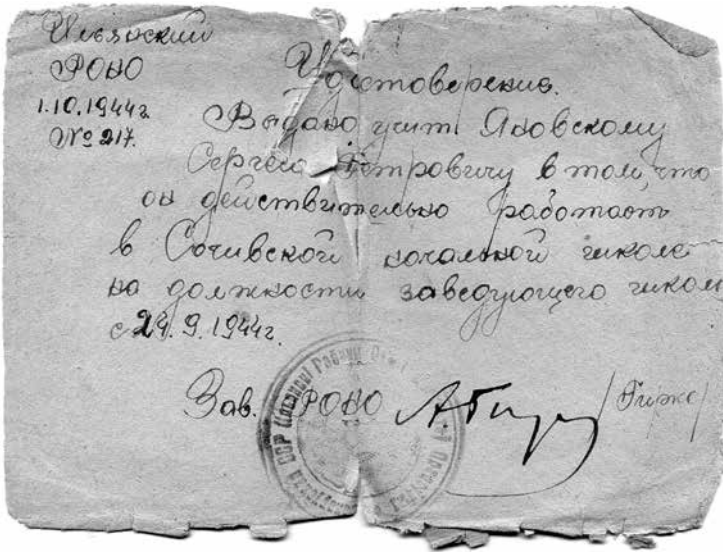 Ильянский
РОНО
1.10.1944г.
№ 217.
Удостоверение.
Выдано учит. Яновскому
Сергею Петровичу в том, что
он действительно работает
в Сочивской начальной школе
на должности заведующего школы
с 24.9.1944г.
Зав. РОНО